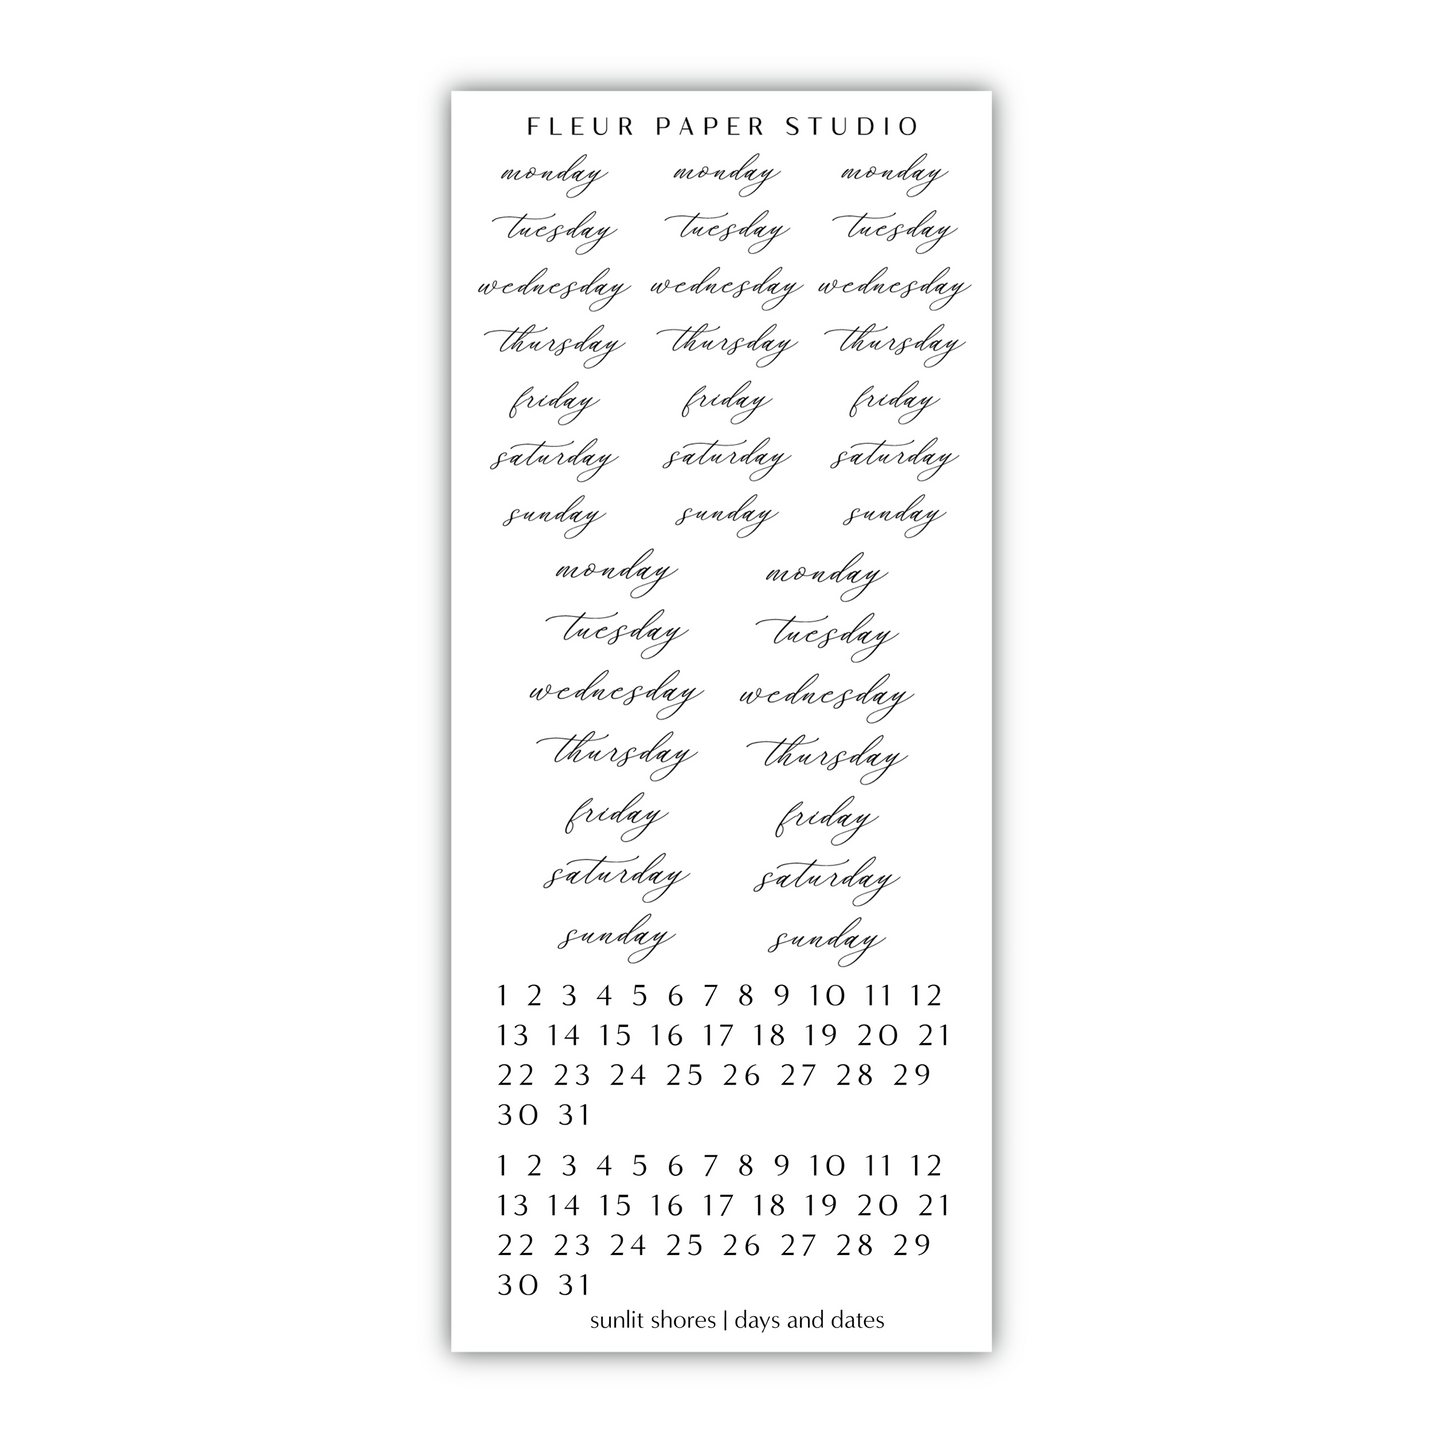 FLEUR PAPER STUDIO
monday monday monday
tuesday tuesday tuesday
wednesday wednesday wednesday
thursday thursday thursday
friday friday friday
saturday saturday saturday
sunday sunday sunday
monday monday
tuesday tuesday
wednesday wednesday
thursday thursday
friday friday
saturday saturday
sunday sunday
1 2 3 4 5 6 7 8 9 10 11 12
13 14 15 16 17 18 19 20 21
22 23 24 25 26 27 28 29
30 31
1 2 3 4 5 6 7 8 9 10 11 12
13 14 15 16 17 18 19 20 21
22 23 24 25 26 27 28 29
30 31
sunlit shores | days and dates